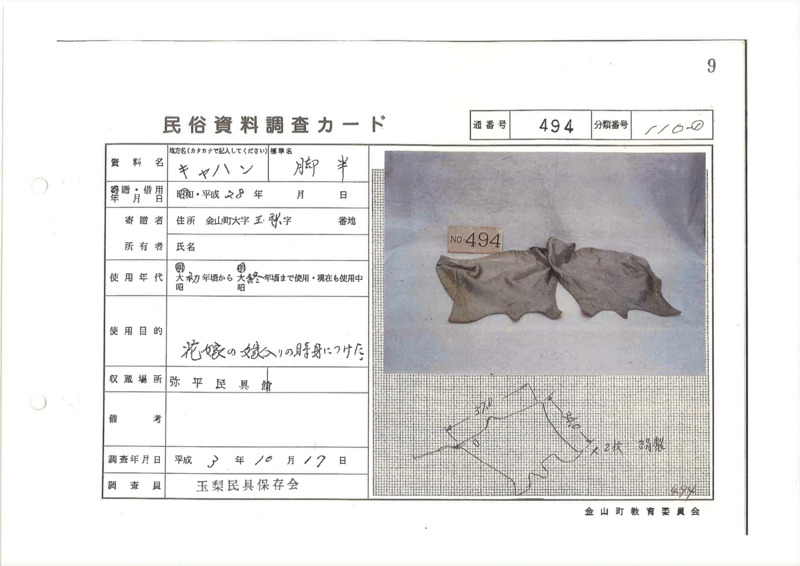 9
民俗資料調査カード
通番号 494 分類番号 110-①
資料名 地方名(カタカナで記入してください) キャハン 標準名 脚半
寄贈・借用年月日 昭和・平成 28 年 月 日
寄贈者 住所 金山町大字 玉梨 字 番地
所有者 氏名
使用年代 明大昭 初 年頃から 明大昭 終 年頃まで使用・現在も使用中
使用目的 花嫁の嫁入りの時身につけた
収蔵場所 弥平民具館
備考
調査年月日 平成 3 年 10 月 17 日
調査員 玉梨民具保存会
NO. 494
37.0
×2枚 絹製
494
金山町教育委員会